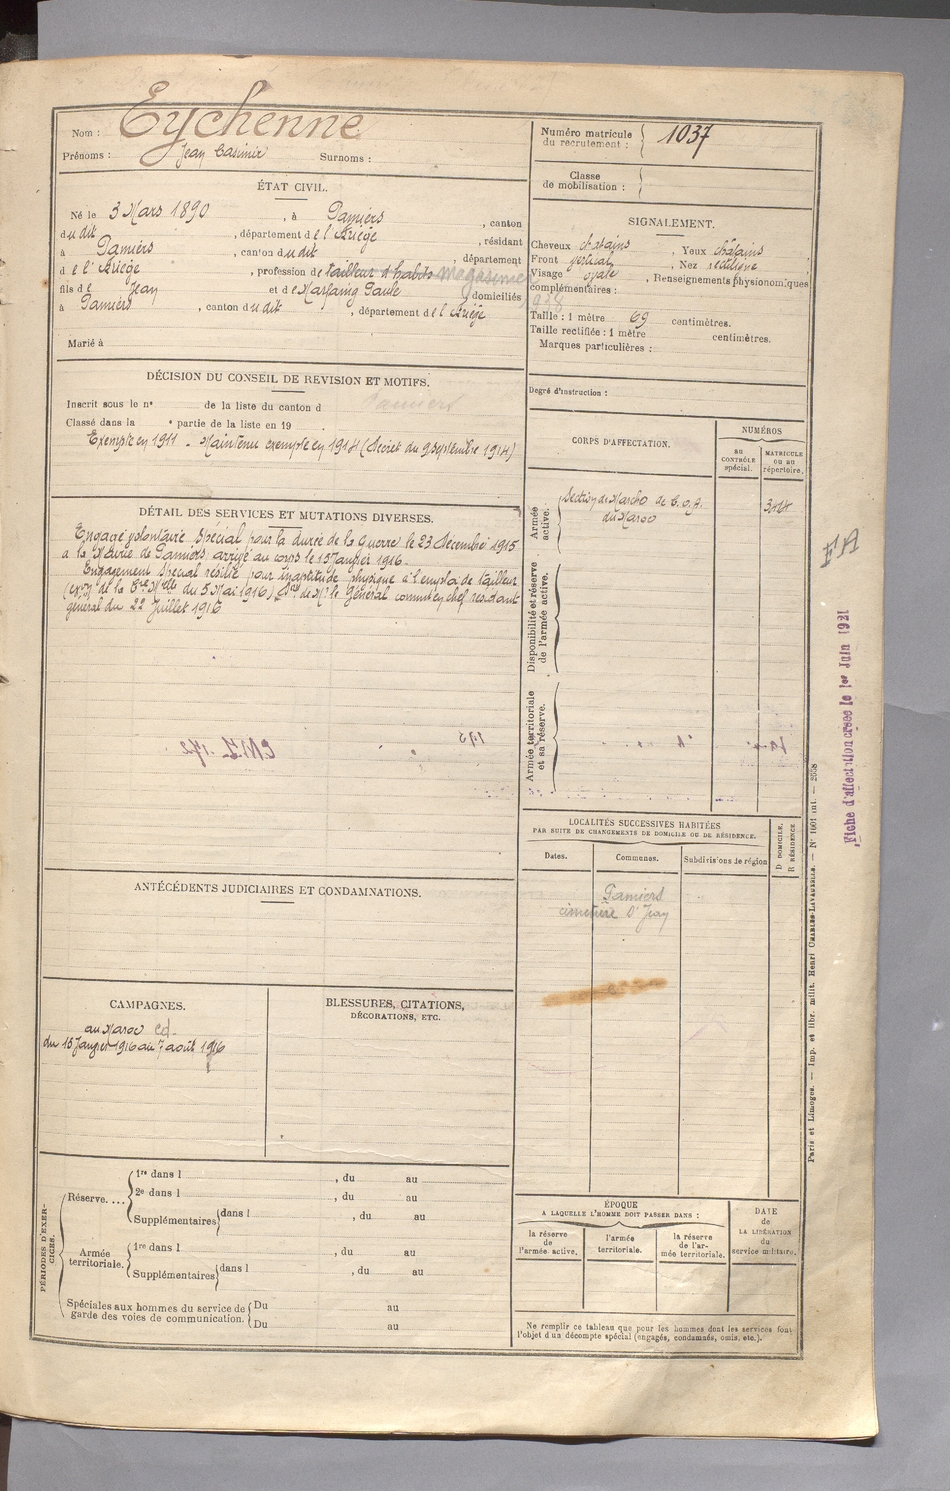 Nom : Eychenne
Prénoms : Jean Casimir Surnoms :
Numéro matricule du recrutement : 1037
Classe de mobilisation :
ÉTAT CIVIL.
Né le 3 Mars 1890, à Pamiers, canton
dudit, département de l'Ariège, résidant
à Pamiers, canton dudit, département
de l'Ariège, profession de tailleur d'habits Magasinier
fils de Jean et de Marfaing Paule, domiciliés
à Pamiers, canton dudit, département de l'Ariège
Marié à
SIGNALEMENT.
Cheveux châtains, Yeux châtains
Front vertical, Nez rectiligne
Visage ovale, Renseignements physionomiques
complémentaires :
938
Taille : 1 mètre 69 centimètres.
Taille rectifiée : 1 mètre centimètres.
Marques particulières :
DÉCISION DU CONSEIL DE REVISION ET MOTIFS.
Inscrit sous le nº de la liste du canton d Pamiers
Classé dans la • partie de la liste en 19
Exempté en 1911 - Maintenu exempté en 1914 (Décret du 9 septembre 1914)
Degré d'instruction :
CORPS D'AFFECTATION.
NUMÉROS
AU CONTRÔLE spécial.
MATRICULE OU AU répertoire.
Armée active.
Section de Marche de C.O.A.
du Maroc
Disponibilité et réserve de l'armée active.
Armée territoriale et sa réserve.
DÉTAIL DES SERVICES ET MUTATIONS DIVERSES.
Engagé volontaire spécial pour la durée de la guerre le 23 Décembre 1915
à la Mairie de Pamiers, arrivé au corps le 15 Janvier 1916.
Engagement spécial résilié pour inaptitude physique à l'emploi de tailleur
du 5 Mai 1916) de Mr le Général commt en chef résident
général du 22 Juillet 1916
LOCALITÉS SUCCESSIVES HABITÉES
PAR SUITE DE CHANGEMENTS DE DOMICILE OU DE RÉSIDENCE.
D DOMICILE.
R RÉSIDENCE
Dates. Communes. Subdivisions de région
Pamiers
cimetière St Jean
ANTÉCÉDENTS JUDICIAIRES ET CONDAMNATIONS.
CAMPAGNES.
au Maroc
du 15 Janvier 1916 au 7 août 1916
BLESSURES, CITATIONS,
DÉCORATIONS, ETC.
PÉRIODES D'EXERCICES.
Réserve....
1re dans l , du au
2e dans l , du au
Supplémentaires dans l , du au
Armée territoriale.
1re dans l , du au
Supplémentaires dans l , du au
Spéciales aux hommes du service de garde des voies de communication.
Du au
Du au
ÉPOQUE
A LAQUELLE L'HOMME DOIT PASSER DANS :
la réserve de l'armée active.
l'armée territoriale.
la réserve de l'armée territoriale.
DATE de LA LIBÉRATION du service militaire.
Ne remplir ce tableau que pour les hommes dont les services font
l'objet d'un décompte spécial (engagés, condamnés, omis, etc.).
Fiche d'affectation créée le 1er Juin 1921
Paris et Limoges. — Imp. et libr. milit. Henri CHARLES-LAVAUZELLE. — Nº 1001 int. — 2558